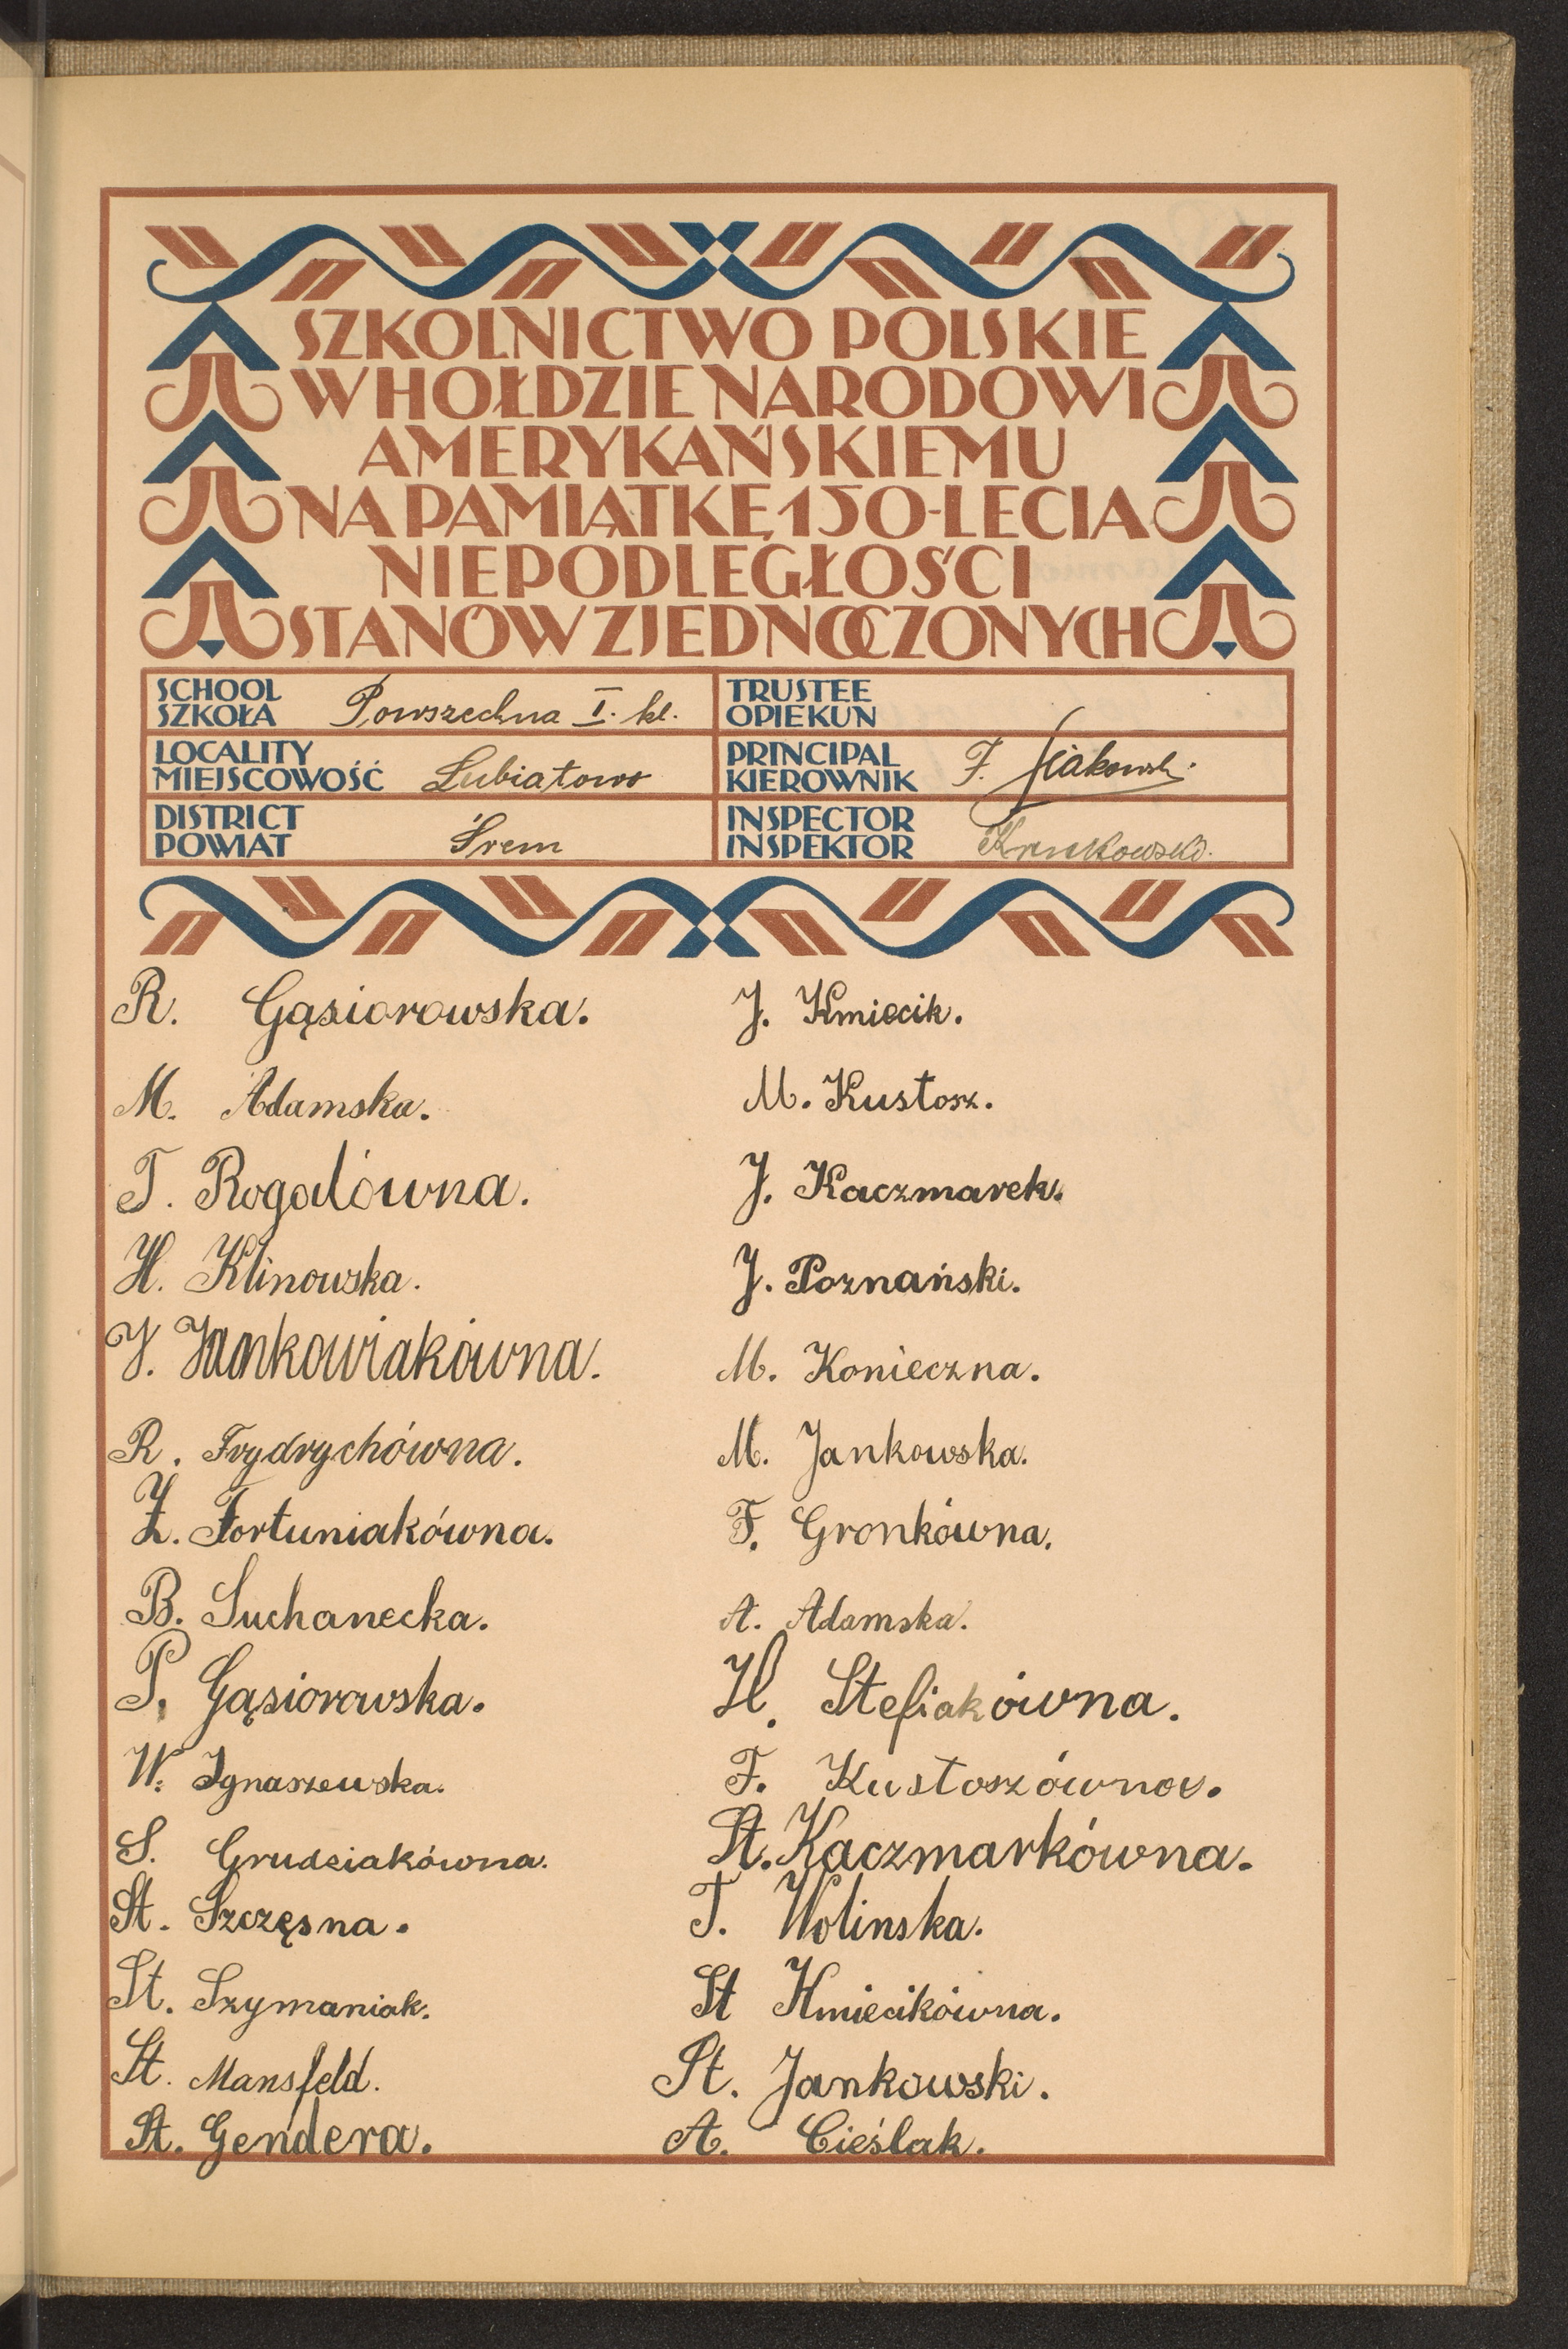 SZKOLNICTWO POLSKIE
W HOŁDZIE NARODOWI
AMERYKAŃSKIEMU
NA PAMIĄTKĘ 150-LECIA
NIEPODLEGŁOŚCI
STANÓW ZJEDNOCZONYCH
SCHOOL
SZKOŁA
Powszechna I. kl.
TRUSTEE
OPIEKUN
LOCALITY
MIEJSCOWOŚĆ
Lubiatowo
PRINCIPAL
KIEROWNIK
F.
DISTRICT
POWIAT
Śrem
INSPECTOR
INSPEKTOR
R. Gąsiorowska.
M. Adamska.
T. Rogalówna.
H. Klinowska.
J. Jankowiakówna.
R. Frydrychówna.
Z. Fortuniakówna.
B. Suchanecka.
P. Gąsiorowska.
W. Ignaszewska.
S. Grudziakówna.
St. Szczęsna.
St. Szymaniak.
St. Mansfeld.
St. Gendera.
J. Kmiecik.
M. Kustosz.
J. Kaczmarek.
J. Poznański.
M. Konieczna.
M. Jankowska.
F. Gronkówna.
A. Adamska.
H. Stefiakówna.
F. Kustoszówna.
St. Kaczmarkówna.
T. Wolinska.
St Kmiecikówna.
St. Jankowski.
A. Cieślak.